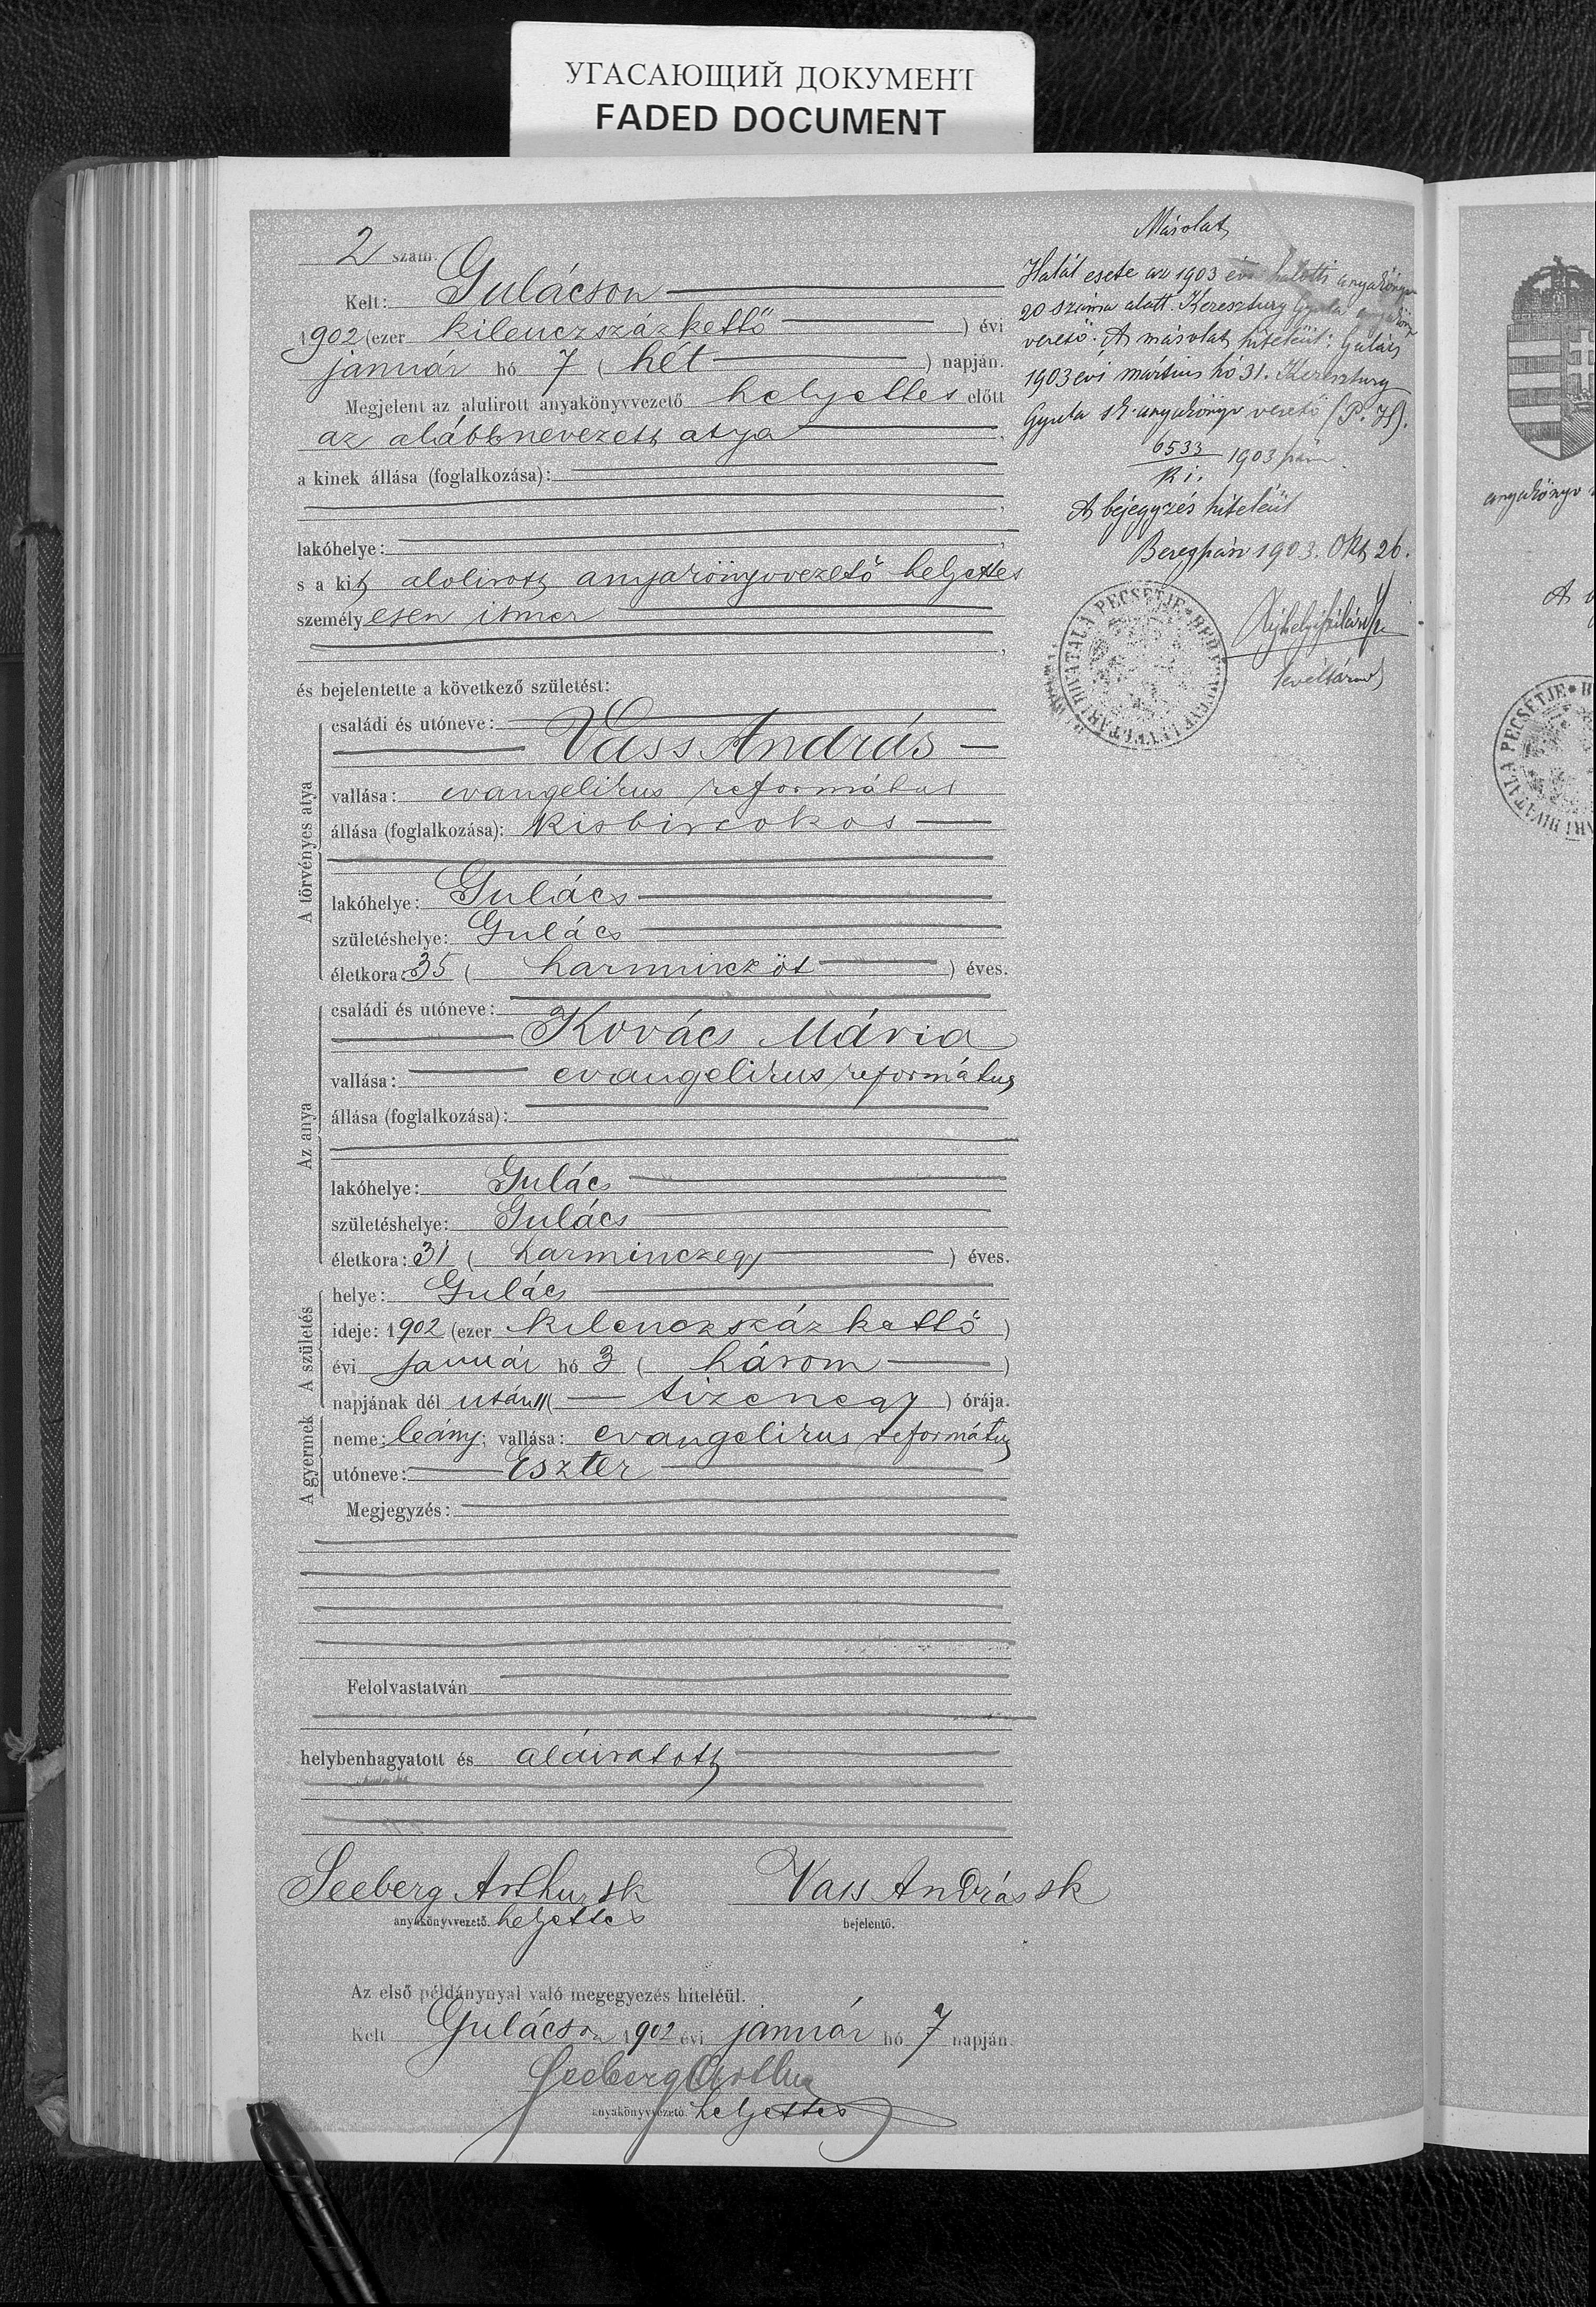 УГАСАЮЩИЙ ДОКУМЕНТ
FADED DOCUMENT
2 szám.
Kelt: Gulácson
1902 (ezer kilenczszázkettő ) évi
január hó 7 ( hét ) napján.
Megjelent az alulirott anyakönyvvezető helyettes előtt
az alábbnevezett atya
a kinek állása (foglalkozása):
lakóhelye:
s a kit alolirott anyakönyvvezető helyettes
személyesen ismer
és bejelentette a következő születést:
A törvényes atya
családi és utóneve:
Vass András
vallása: evangelikus református
állása (foglalkozása): kisbirtokos
lakóhelye: Gulács
születéshelye: Gulács
életkora: 35 ( harminczöt ) éves.
Az anya
családi és utóneve:
Kovács Mária
vallása: evangelikus református
állása (foglalkozása):
lakóhelye: Gulács
születéshelye: Gulács
életkora: 31 ( harminczegy ) éves.
A születés
helye: Gulács
ideje: 1902 (ezer kilenczszáz kettő )
évi január hó 3 ( három )
napjának dél után 11 ( tizenegy ) órája.
A gyermek
neme: leány; vallása: evangelikus református
utóneve: Eszter
Megjegyzés:
Felolvastatván
helybenhagyatott és aláiratott
Seeberg Arthur sk Vass András sk
anyakönyvvezető. helyettes bejelentő.
Az első példánynyal való megegyezés hiteléül.
Kelt Gulácson 1902 évi január hó 7 napján.
Seeberg Arthur
anyakönyvvezető helyettes
Másolat
Halál esete az 1903 évi halotti anyakönyv
20 száma alatt. Keresztury Gyula anyakönyv
vezető. A másolat hiteléül: Gulács
1903 évi mártius hó 31. Keresztury
Gyula sk. anyakönyv vezető (P. H).
6533 1903
ki.
A bejegyzés hiteléül
Beregszász 1903. Okt 26.
levéltárnok
PECSÉTJE
anyakönyv
A
PECSÉTJE